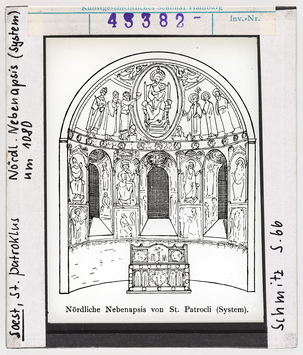 Kunstgeschichtliches Seminar Hamburg
43382- Inv.-Nr.
Soest, St. Patroklus Nördl. Nebenapsis (System)
um 1080
Nördliche Nebenapsis von St. Patrocli (System).
Schmitz S.66